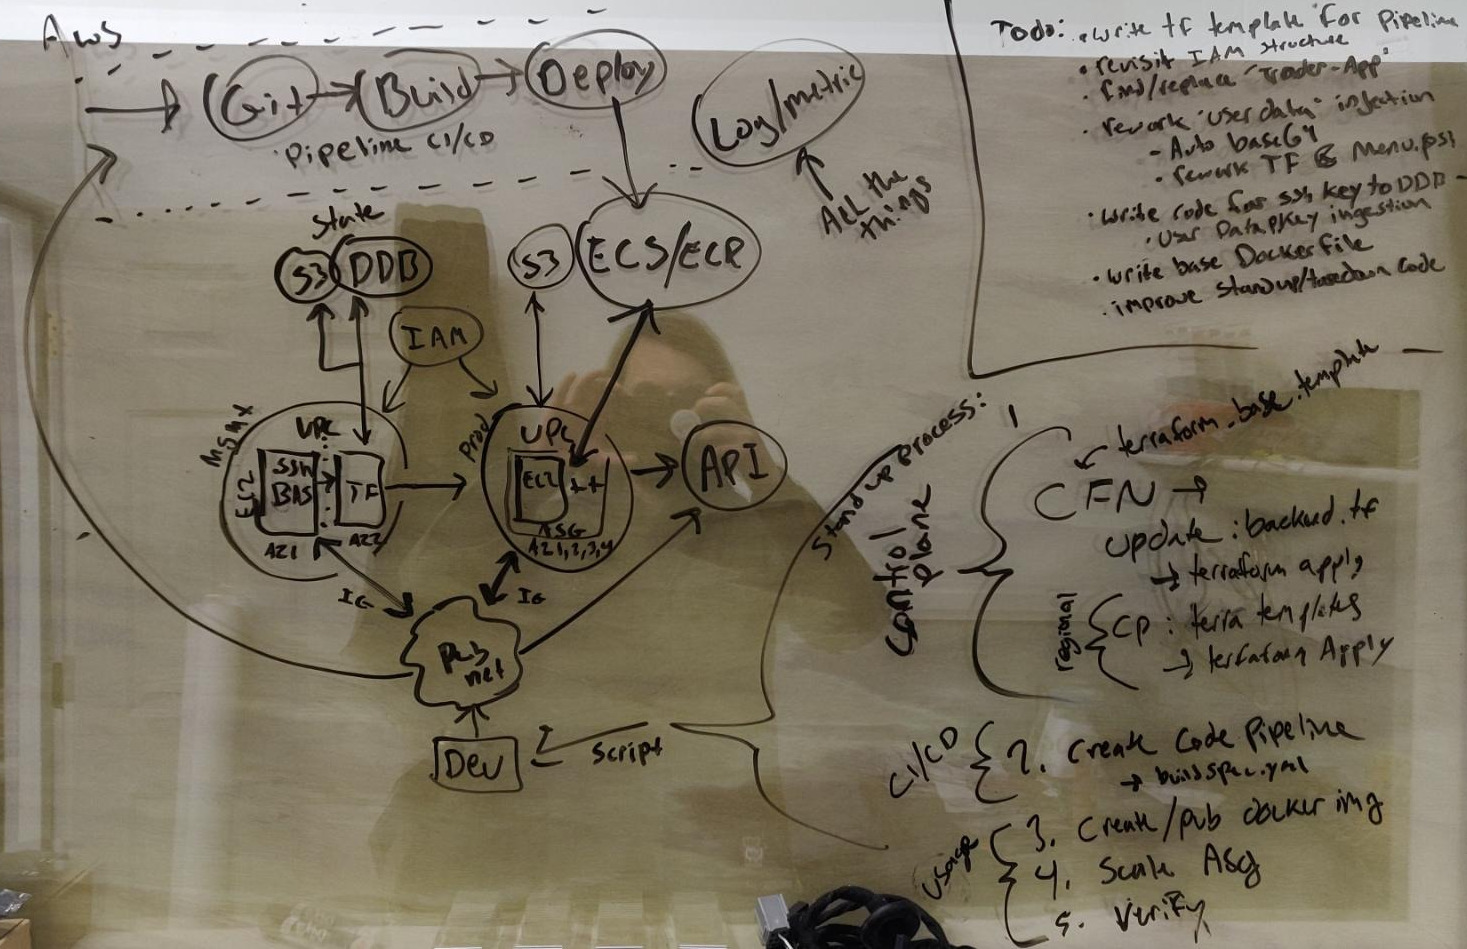 Aws
Git
Build
Deploy
Pipeline CI/CD
Log/metric
All the
things
State
S3
DDB
S3
ECS/ECR
IAM
Mgmt
VPC
EC2
SSH
BAS
TF
AZ1
AZ2
Prod
VPC
EC2
++
ASG
AZ1,2,3,4
API
IG
IG
Pub
net
Dev
Script
Todo: • write tf template for Pipeline
• revisit IAM structure
• find/replace "Trader-App"
• rework "user data" injection
- Auto base64
• rework TF & Menu.ps1
• write code for ssh key to DDB -
• User Data PKey ingestion
• write base Dockerfile
• improve Standup/ Code
Stand up process:
Control
plane
1
terraform.base.template
CFN →
update : backend.tf
→ terraform apply
regional
CP : terra templates
→ terraform Apply
CI/CD
2. Create Code Pipeline
→ buildspec.yml
usage
3. Create/pub docker img
4. Scale ASG
5. Verify